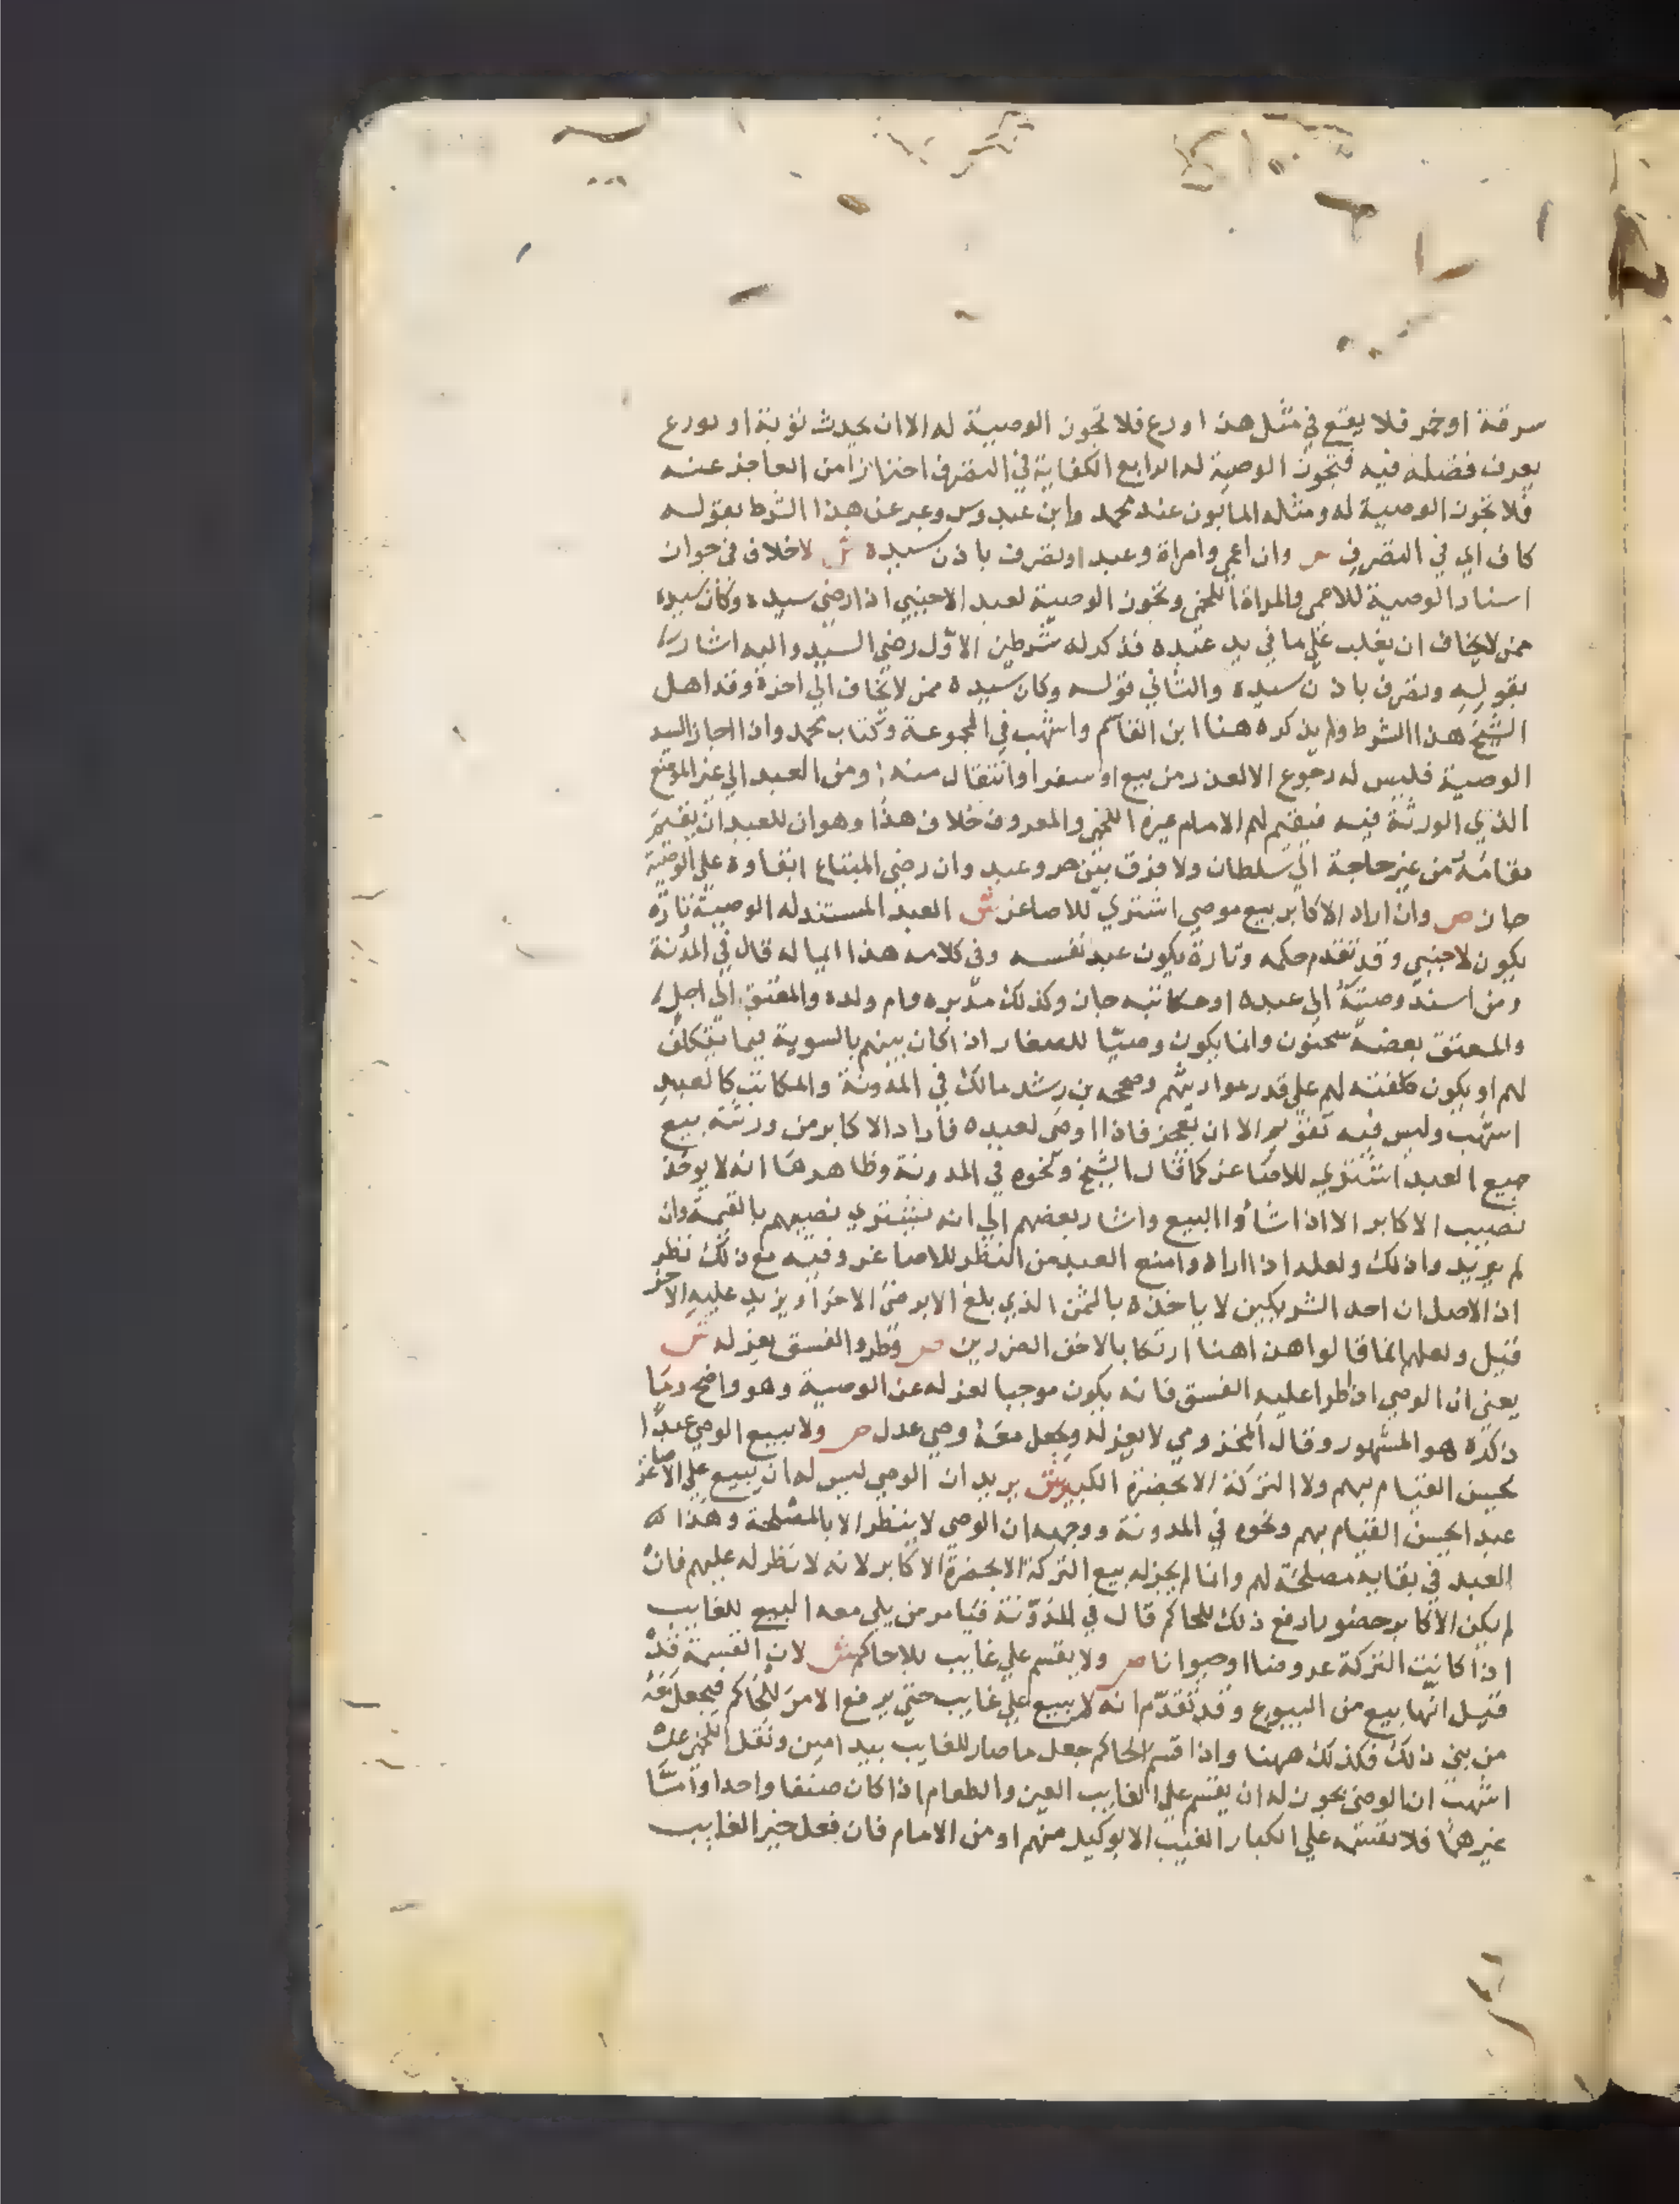 سرقة او خمر فلا يقع في مثل هذا او رع فلا تجوز الوصية له الا ان يحدث توبة او تورع
يعرف فضله فيه فتجوز الوصية له الرابع الكفاية في التصرف احترازا من العاجز عنه
فلا تجوز الوصية له ومثله المابون عند محمد وابن عبدوس وعبر عن هذا الشرط بقوله
كاف اي في التصرف ص وان اعمي وامراة وعبد او تصرف باذن سيده ش لا خلاف في جواز
اسناد الوصية للاعمى والمراة اللخمي وتجوز الوصية لعبد الاجنبي اذا رضي سيده وكان سيده
ممن لا يخاف ان يغلب علي ما في يد عبده فذكر له شرطين الاول رضي السيد واليه اشار
بقوله وتصرف باذن سيده والثاني قوله وكان سيده ممن لا يخاف الي اخره وقد اهمل
الشيخ هذا الشرط ولم يذكره هنا ابن القاسم واشهب في المجموعة وكتاب محمد واذا اجاز السيد
الوصية فليس له رجوع الا لعذر من بيع او سفر او انتقال منه او من العبد الي غير الموضع
الذي الورثة فيه فيقيم لهم الامام غيره اللخمي والمعروف خلاف هذا وهو ان للعبد ان يقيم
مقامه من غير حاجة الي سلطان ولا فرق بين حر وعبد وان رضي المبتاع ابقاوه علي الوصية
جاز ص وان اراد الاكابر بيع موصي اشتري للاصاغر ش العبد المستند له الوصية تارة
يكون لاجنبي وقد تقدم حكمه وتارة يكون عبد نفسه وفي كلامه هذا ايما له قال في المدونة
ومن اسند وصيته الي عبده او مكاتبه جاز وكذلك مدبره وام ولده والمعتق الي اجل
والمعتق بعضه سحنون وانما يكون وصيا للصغار اذا كان بينهم بالسوية فيما يتكلف
لهم او يكون كلفته لهم علي قدر مواريثهم وصححه بن رشد مالك في المدونة والمكاتب كالعبد
اشهب وليس فيه تقويم الا ان يعجز فاذا اوصى لعبده فاراد الاكابر من ورثته بيع
جميع العبد اشتري للاصاغر كما قال الشيخ ونحوه في المدونة وظاهرها انه لا يوخذ
نصيب الاكابر الا اذا شاوا البيع واشار بعضهم الي انه يشتري نصيبهم بالقيمة وان
لم يريدوا ذلك ولعله اذا ارادوا منع العبد من النظر للاصاغر وفيه مع ذلك نظر
اذ الاصل ان احد الشريكين لا ياخذه بالثمن الذي بلغ الا برضى الاخر او يزيد عليه الاخر
قيل ولعلهم انما قالوا هذا هنا ارتكابا لاخف الضررين ص وطرو الفسق يعزله ش
يعني ان الوصي اذ طرا عليه الفسق فانه يكون موجبا لعزله عن الوصية وهو واضح وما
ذكره هو المشهور وقال المخزومي لا يعزله ويجعل معه وصي عدل ص ولا يبيع الوصي عبدا
يحسن القيام بهم ولا التركة الا بحضرة الكبير ش يريد ان الوصي ليس له ان يبيع علي الاصاغر
عبدا يحسن القيام بهم ونحوه في المدونة ووجهه ان الوصي لا ينظر الا بالمصلحة وهذا
العبد في بقايه مصلحة لهم وانما لم يجز له بيع التركة الا بحضرة الاكابر لانه لا نظر له عليهم فان
لم يكن الاكابر حضورا دفع ذلك للحاكم قال في المدونة فيامر من يلي معه البيع للغايب
اذا كانت التركة عروضا او حيوانا ص ولا يقسم علي غايب بلا حاكم ش لان القسمة قد
قيل انها بيع من البيوع وقد تقدم انه لا يبيع علي غايب حتي يرفع الامر للحاكم فيجعل معه
من يلي ذلك فكذلك ههنا واذا قسم الحاكم جعل ما صار للغايب بيد امين ونقل اللخمي عن
اشهب ان الوصي يجوز له ان يقسم علي الغايب العين والطعام اذا كان صنفا واحدا واما
غيرهما فلا يقسمه علي الكبار الغيب الا بوكيل منهم او من الامام فان فعل خير الغايب